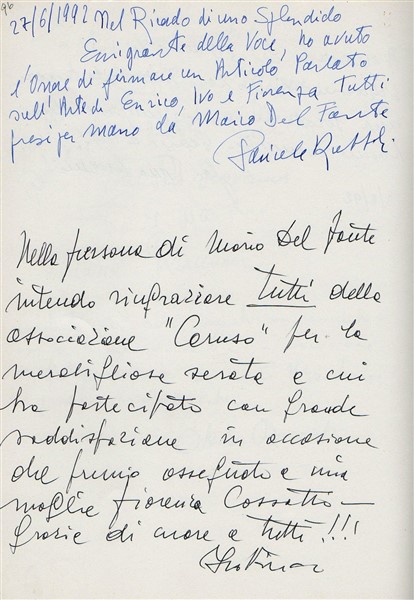 96
27/6/1992 Nel Ricordo di uno Splendido
Emigrante della Voce, ho avuto
l'Onore di firmare un Articolo Parlato
sull'Arte di Enrico, Ivo e Fiorenza Tutti
presi per mano da Mario Del Fante
Daniele
Nella persona di Mario Del Fante
intendo ringraziare tutti della
associazione "Caruso" per la
meravigliosa serata a cui
ho partecipato con grande
soddisfazione in occasione
del premio assegnato a mia
moglie Fiorenza Cossotto –
Grazie di cuore a tutti!!!
Ivo Vinco